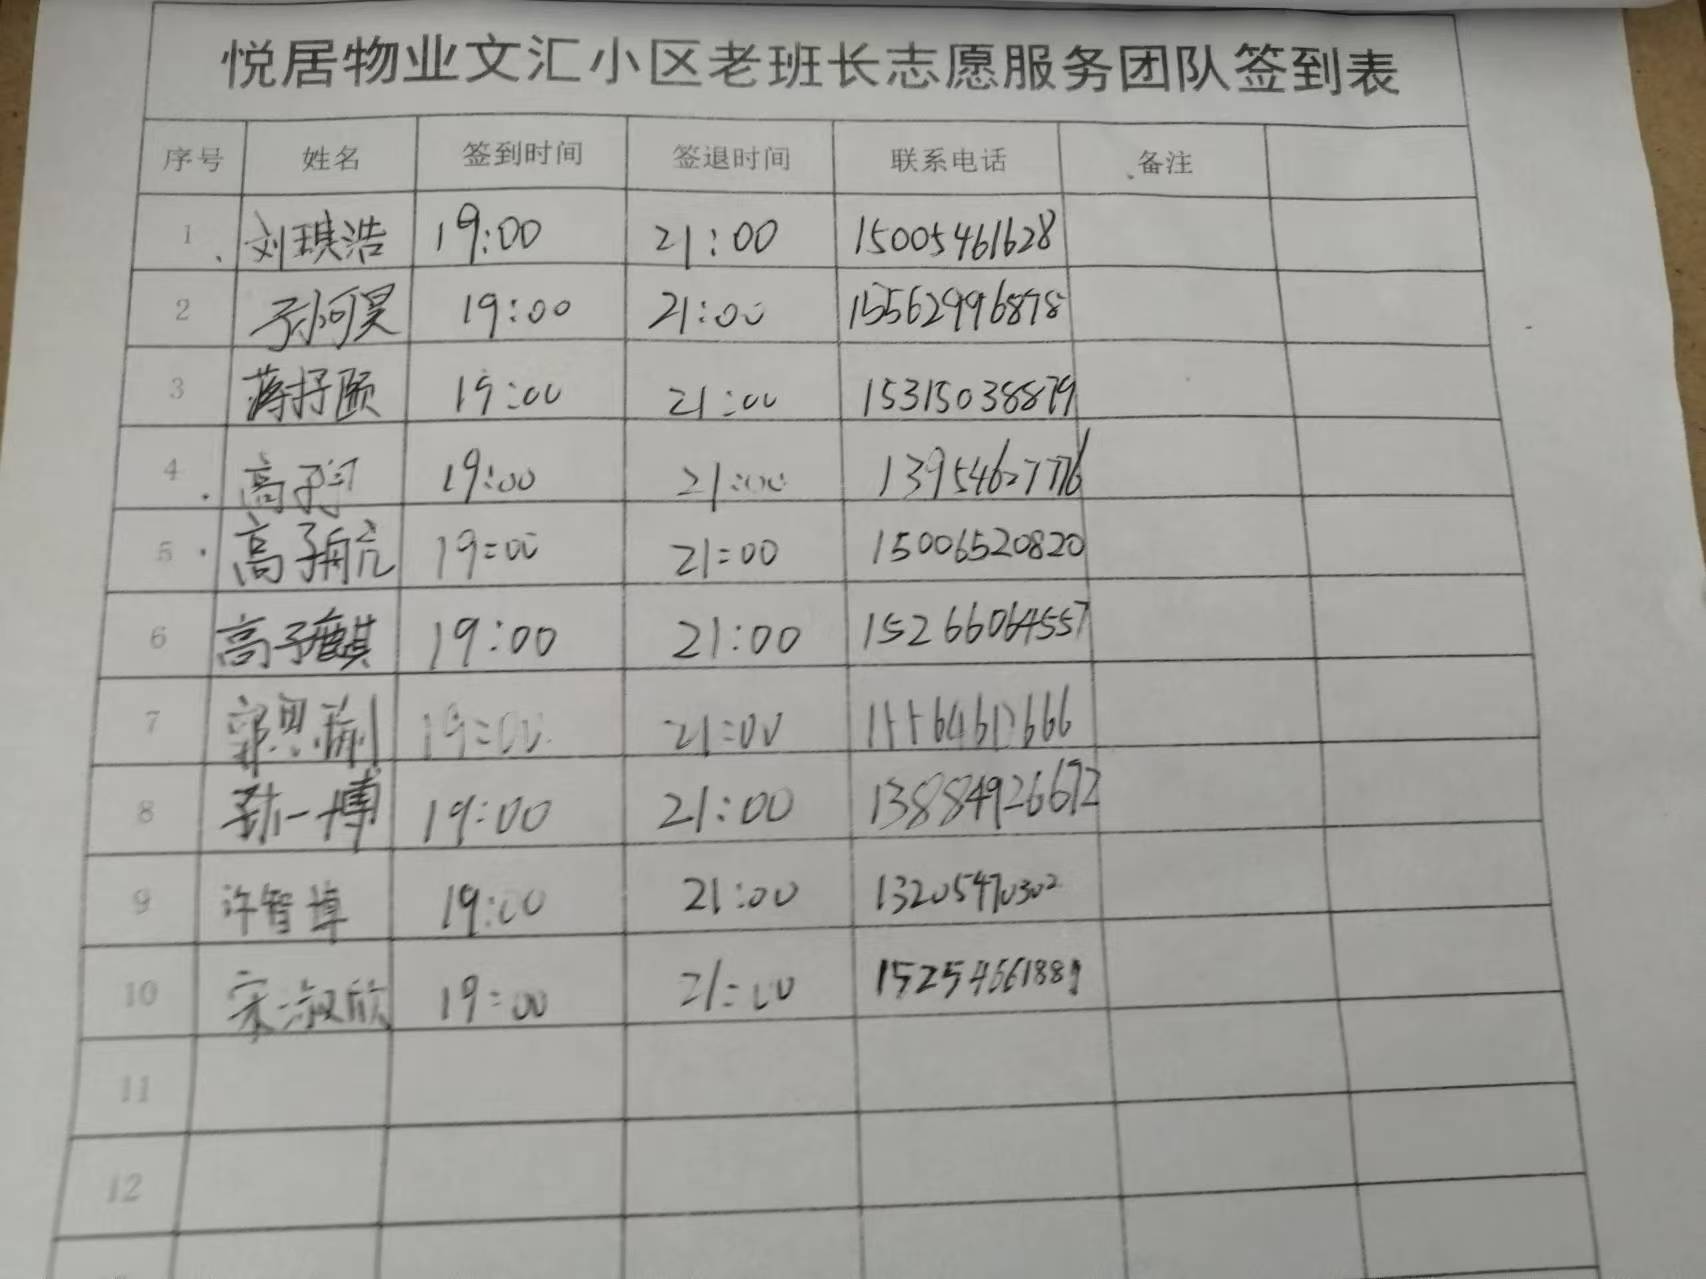 悦居物业文汇小区老班长志愿服务团队签到表
序号 姓名 签到时间 签退时间 联系电话 备注
1 刘琪浩 19:00 21:00 15005461628
2 孙何昊 19:00 21:00 15562996878
3 蒋抒颐 19:00 21:00 15315038879
4 高子 19:00 21:00 13954627776
5 高子航 19:00 21:00 15006520820
6 高子麒 19:00 21:00 15266064557
7 郭思 19:00 21:00
8 孙一博 19:00 21:00 13884926672
9 许智 19:00 21:00 13205470302
10 宋淑欣 19:00 21:00 15254661889
11
12